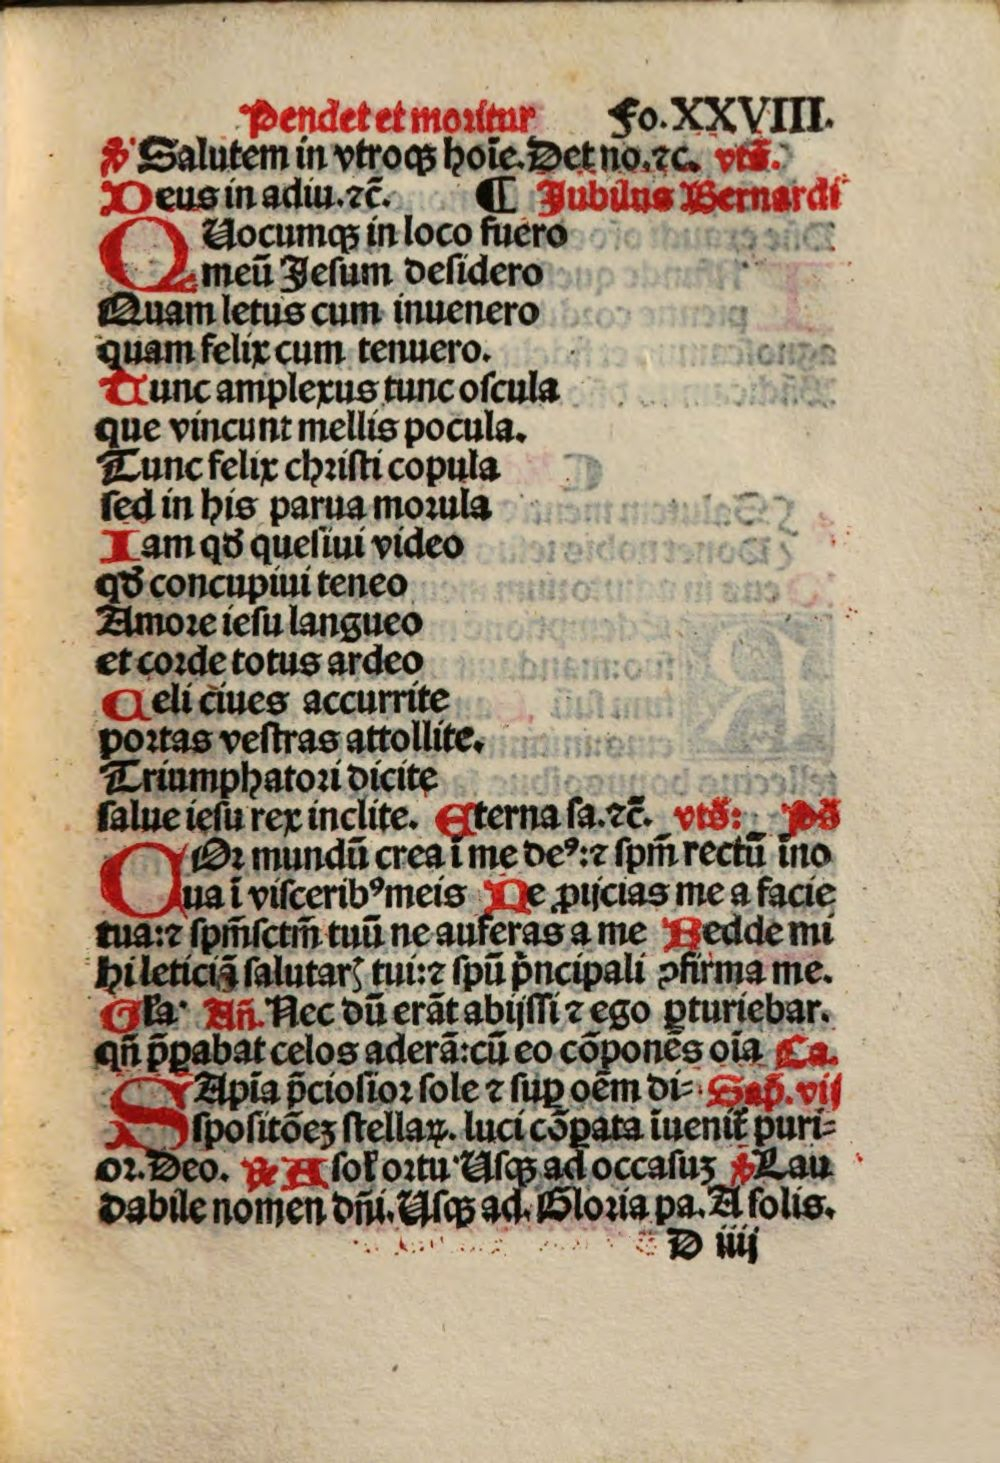 Pendet et moritur Fo.XXVIII.
℣ Salutem in vtroqꝫ hoīe. Det no.⁊c. vts̄.
Deus in adiu.⁊c̄. ¶ Jubilus Bernardi
QUocumqꝫ in loco fuero
meū Jesum desidero
Quam letus cum inuenero
quam felix cum tenuero.
Tunc amplexus tunc oscula
que vincunt mellis pocula.
Tunc felix christi copula
sed in his parua morula
Iam qď quesiui video
qď concupiui teneo
Amore iesu langueo
et corde totus ardeo
Celi ciues accurrite
portas vestras attollite.
Triumphatori dicite
salue iesu rex inclite. Eterna sa.⁊c̄. vts̄: Ps̄
COr mundū crea ī me deꝰ:⁊ spm̄ rectū īno
ua ī visceribꝰ meis Ne ꝓijcias me a facie
tua:⁊ spm̄sctm̄ tuū ne auferas a me Redde mi
hi leticiā salutarꝭ tui:⁊ spū p̄ncipali ꝯfirma me.
Gła Añ. Nec dū erāt abijssi ⁊ ego ꝑturiebar.
qñ p̄ꝑabat celos aderā:cū eo cōponēs oīa Ca.
SApīa p̄ciosior sole ⁊ suꝑ oēm di⸗ Sap̄. vij
spositōeꝫ stellaꝝ. luci cōꝑata īuenit᷑ puri⸗
or. Deo. ℟ A soł ortu Usqꝫ ad occasuꝫ ℣ Lau
dabile nomen dñi. Usqꝫ ad. Gloria pa. A solis.
D iiij